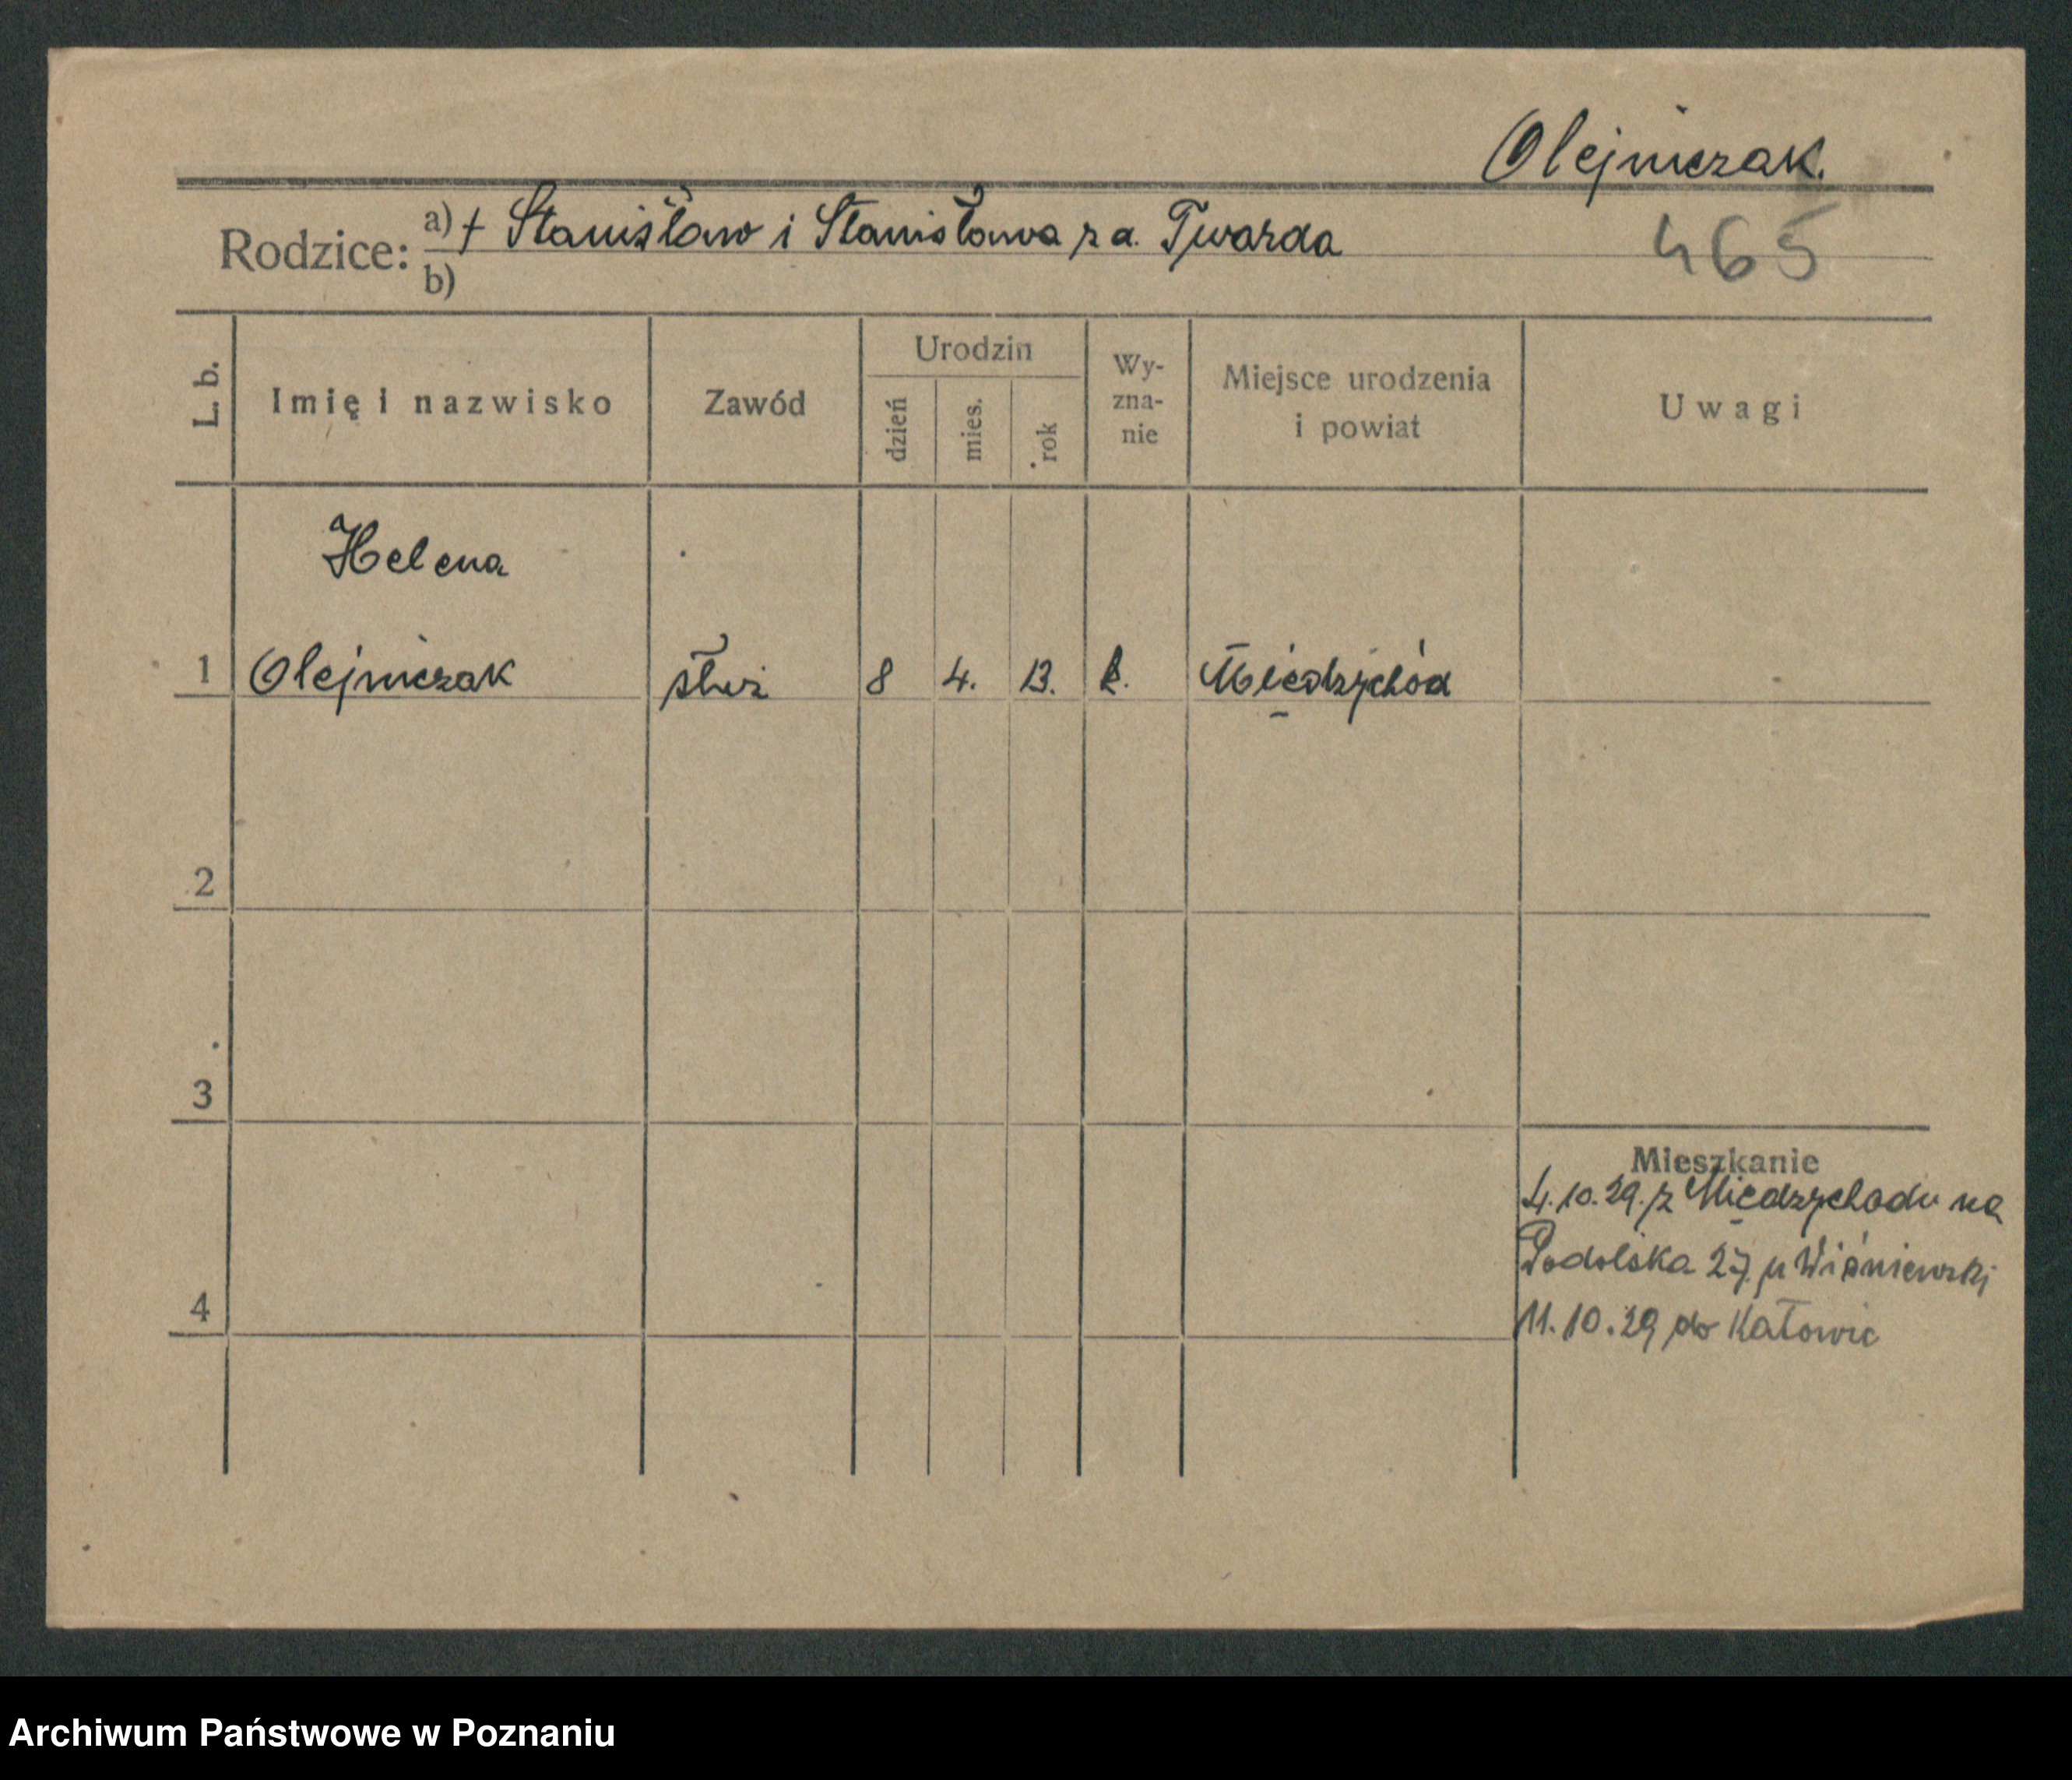 Olejniczak.
465
Rodzice: a) + Stanisław i Stanisława z d. Twarda
b)
L. b.
Imię i nazwisko
Zawód
Urodzin
dzień
mies.
rok
Wy-
zna-
nie
Miejsce urodzenia
i powiat
Uwagi
Helena
1 Olejniczak służ 8 4. 13. k. Międzychód
2
3
4
Mieszkanie
4.10.29. z Międzychodu na
Podolska 27 u Wiśniewski
11.10.29 do Katowic
Archiwum Państwowe w Poznaniu